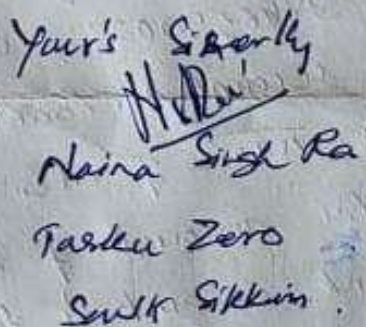 Your's Sincerly
Naina Singh Ra
Tasku Zero
South Sikkim.